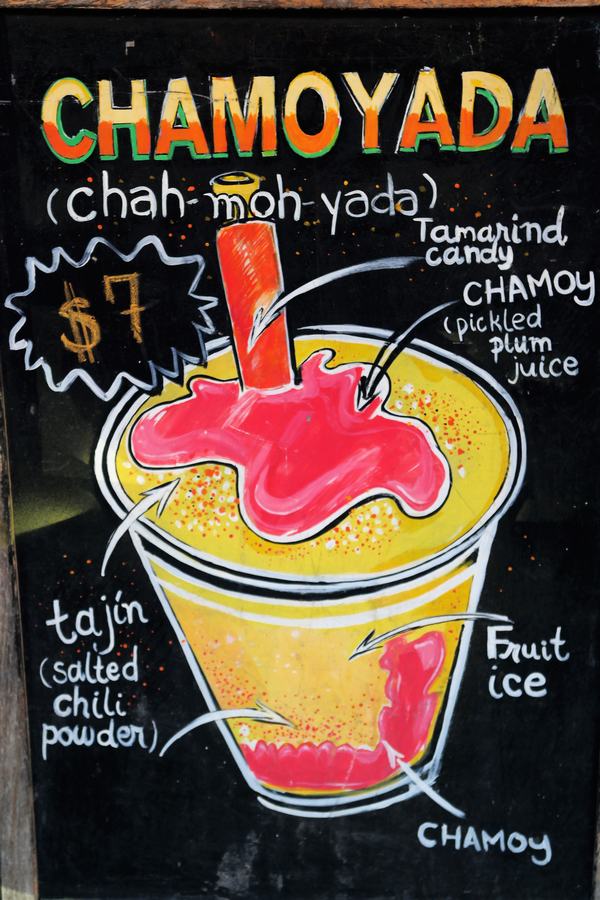 CHAMOYADA
(chah-moh-yada)
$7
Tamarind
candy
CHAMOY
(pickled
plum
juice
tajín
(salted
chili
powder)
Fruit
ice
CHAMOY